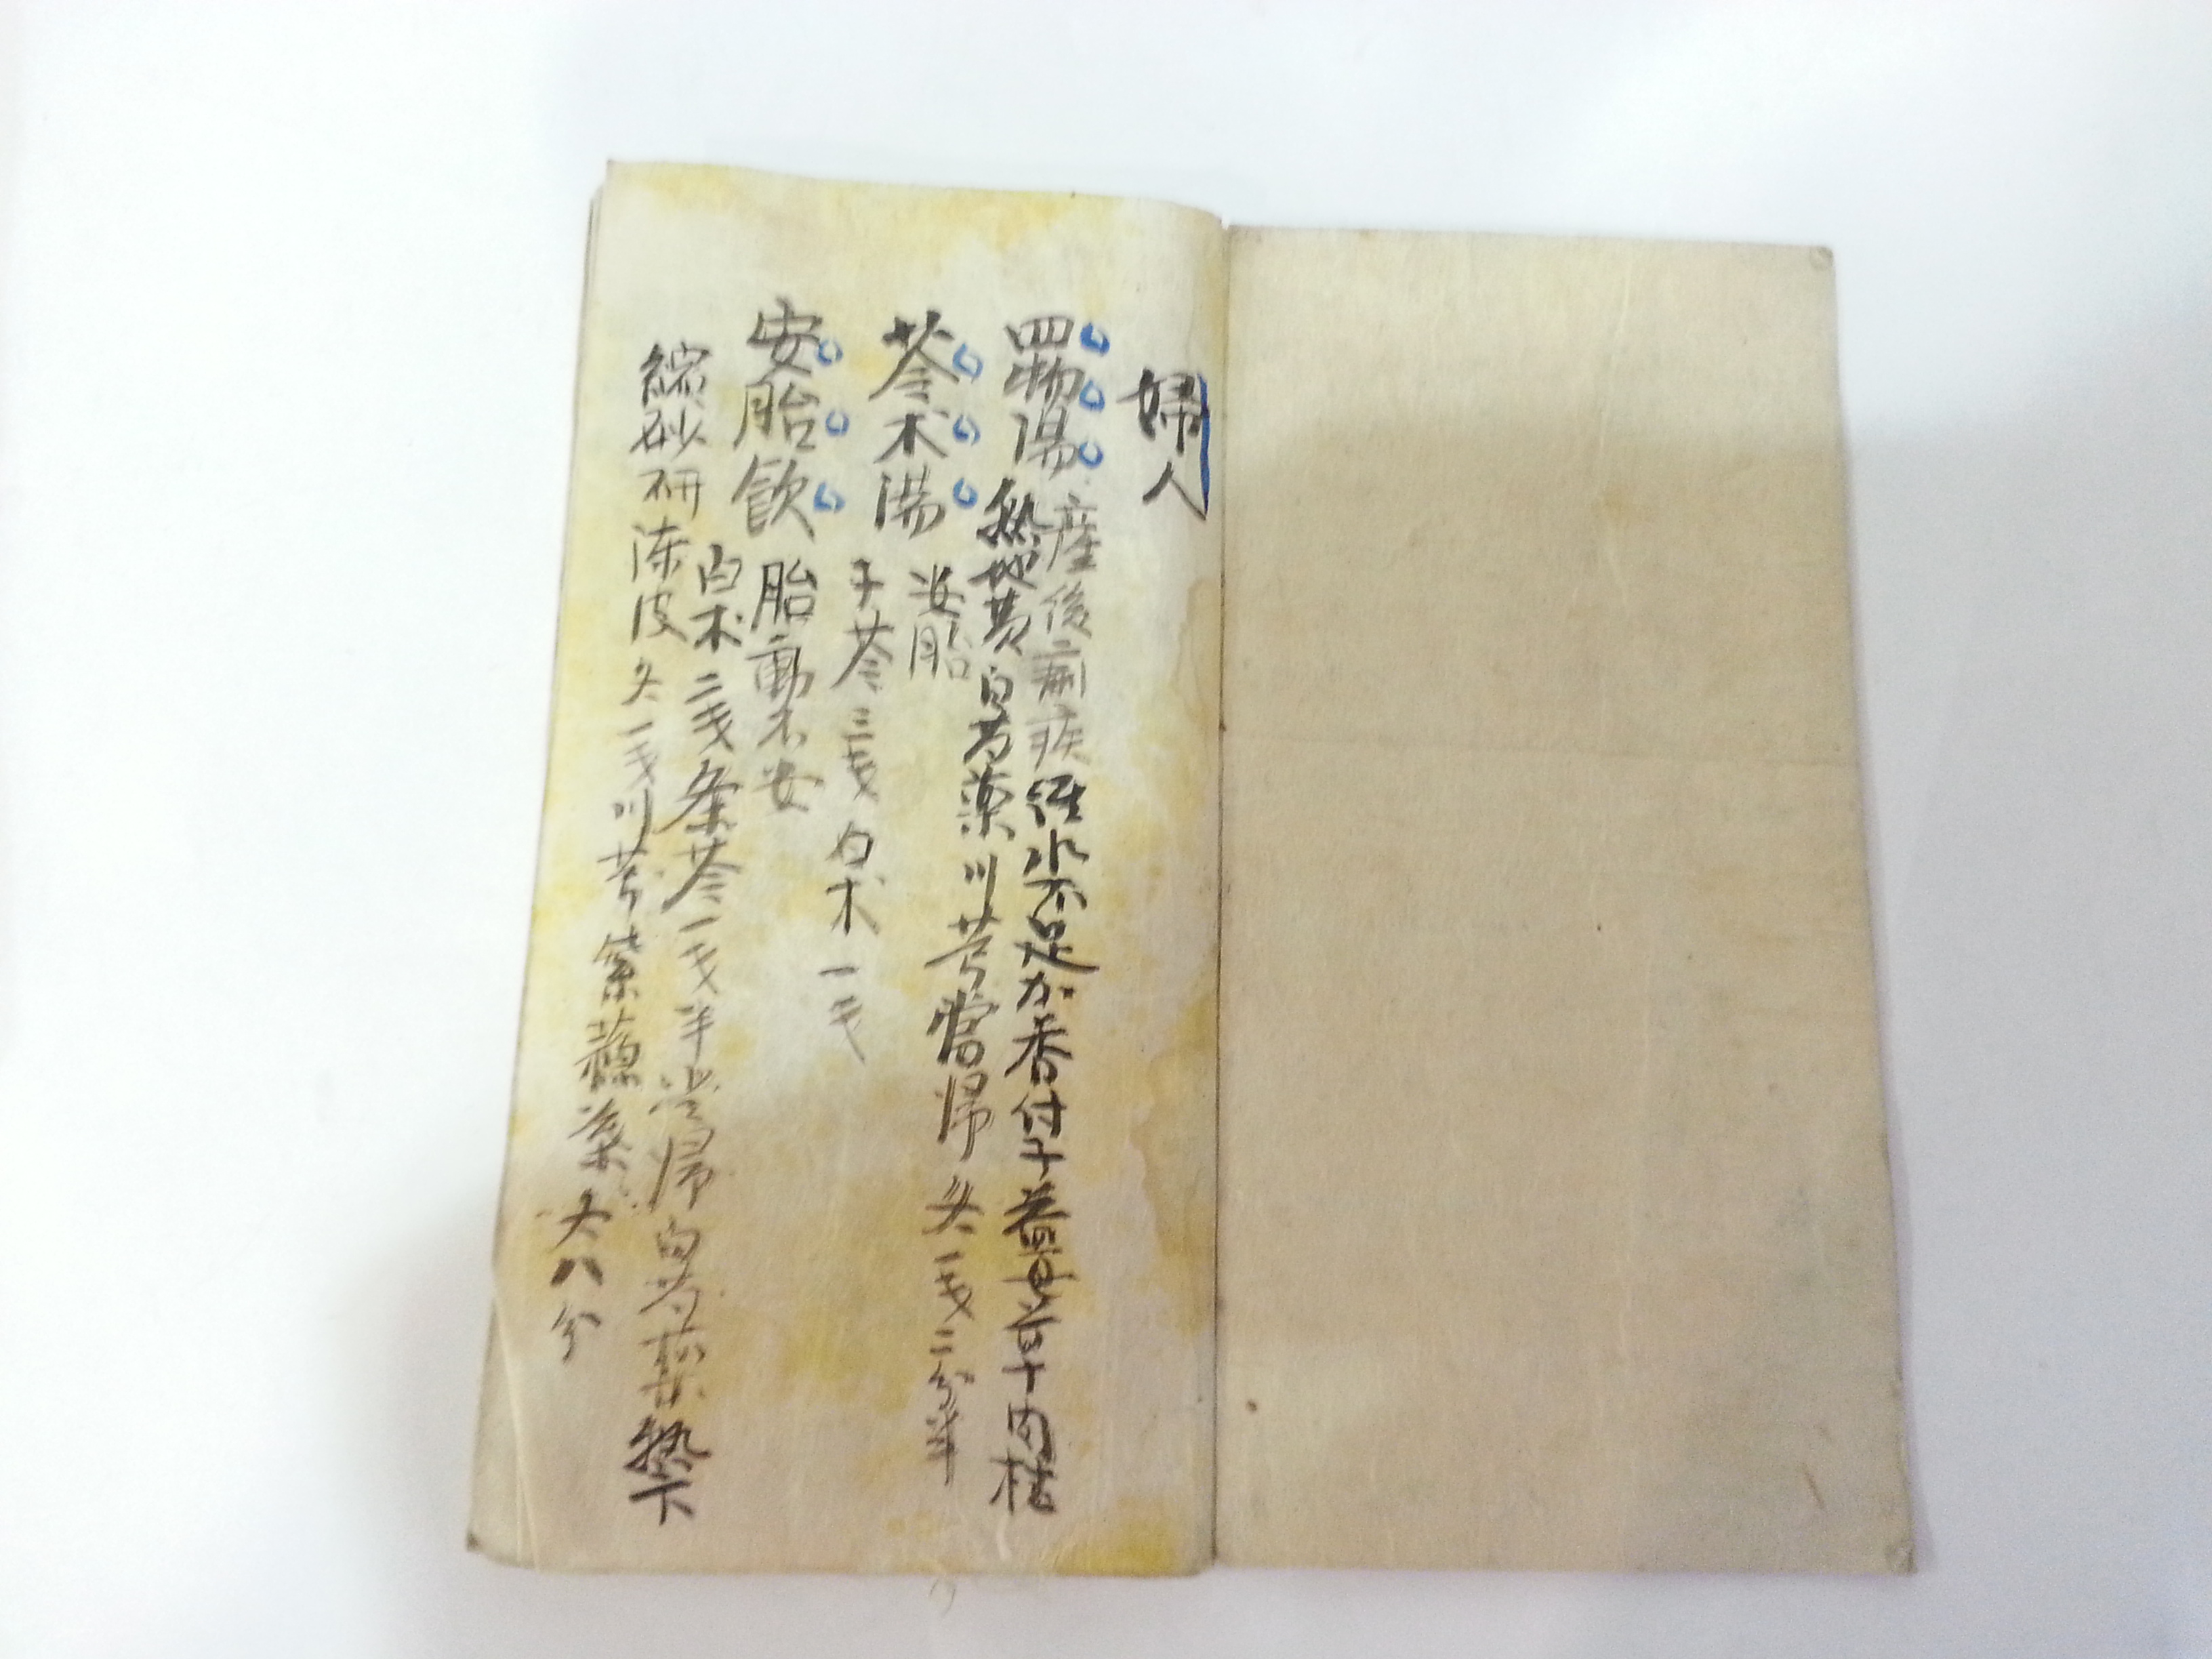 婦人
四物湯 産後痢疾 經水不足加香付子益母草 肉桂
熟地黄白芍藥川芎當歸各一戔二分半
芩朮湯 安胎
子芩三戔 白朮一戔
安胎飲 胎動不安
白朮二戔条芩一戔半當歸白芍藥熟下
縮砂研陳皮各一戔川芎紫蘇葉各八分